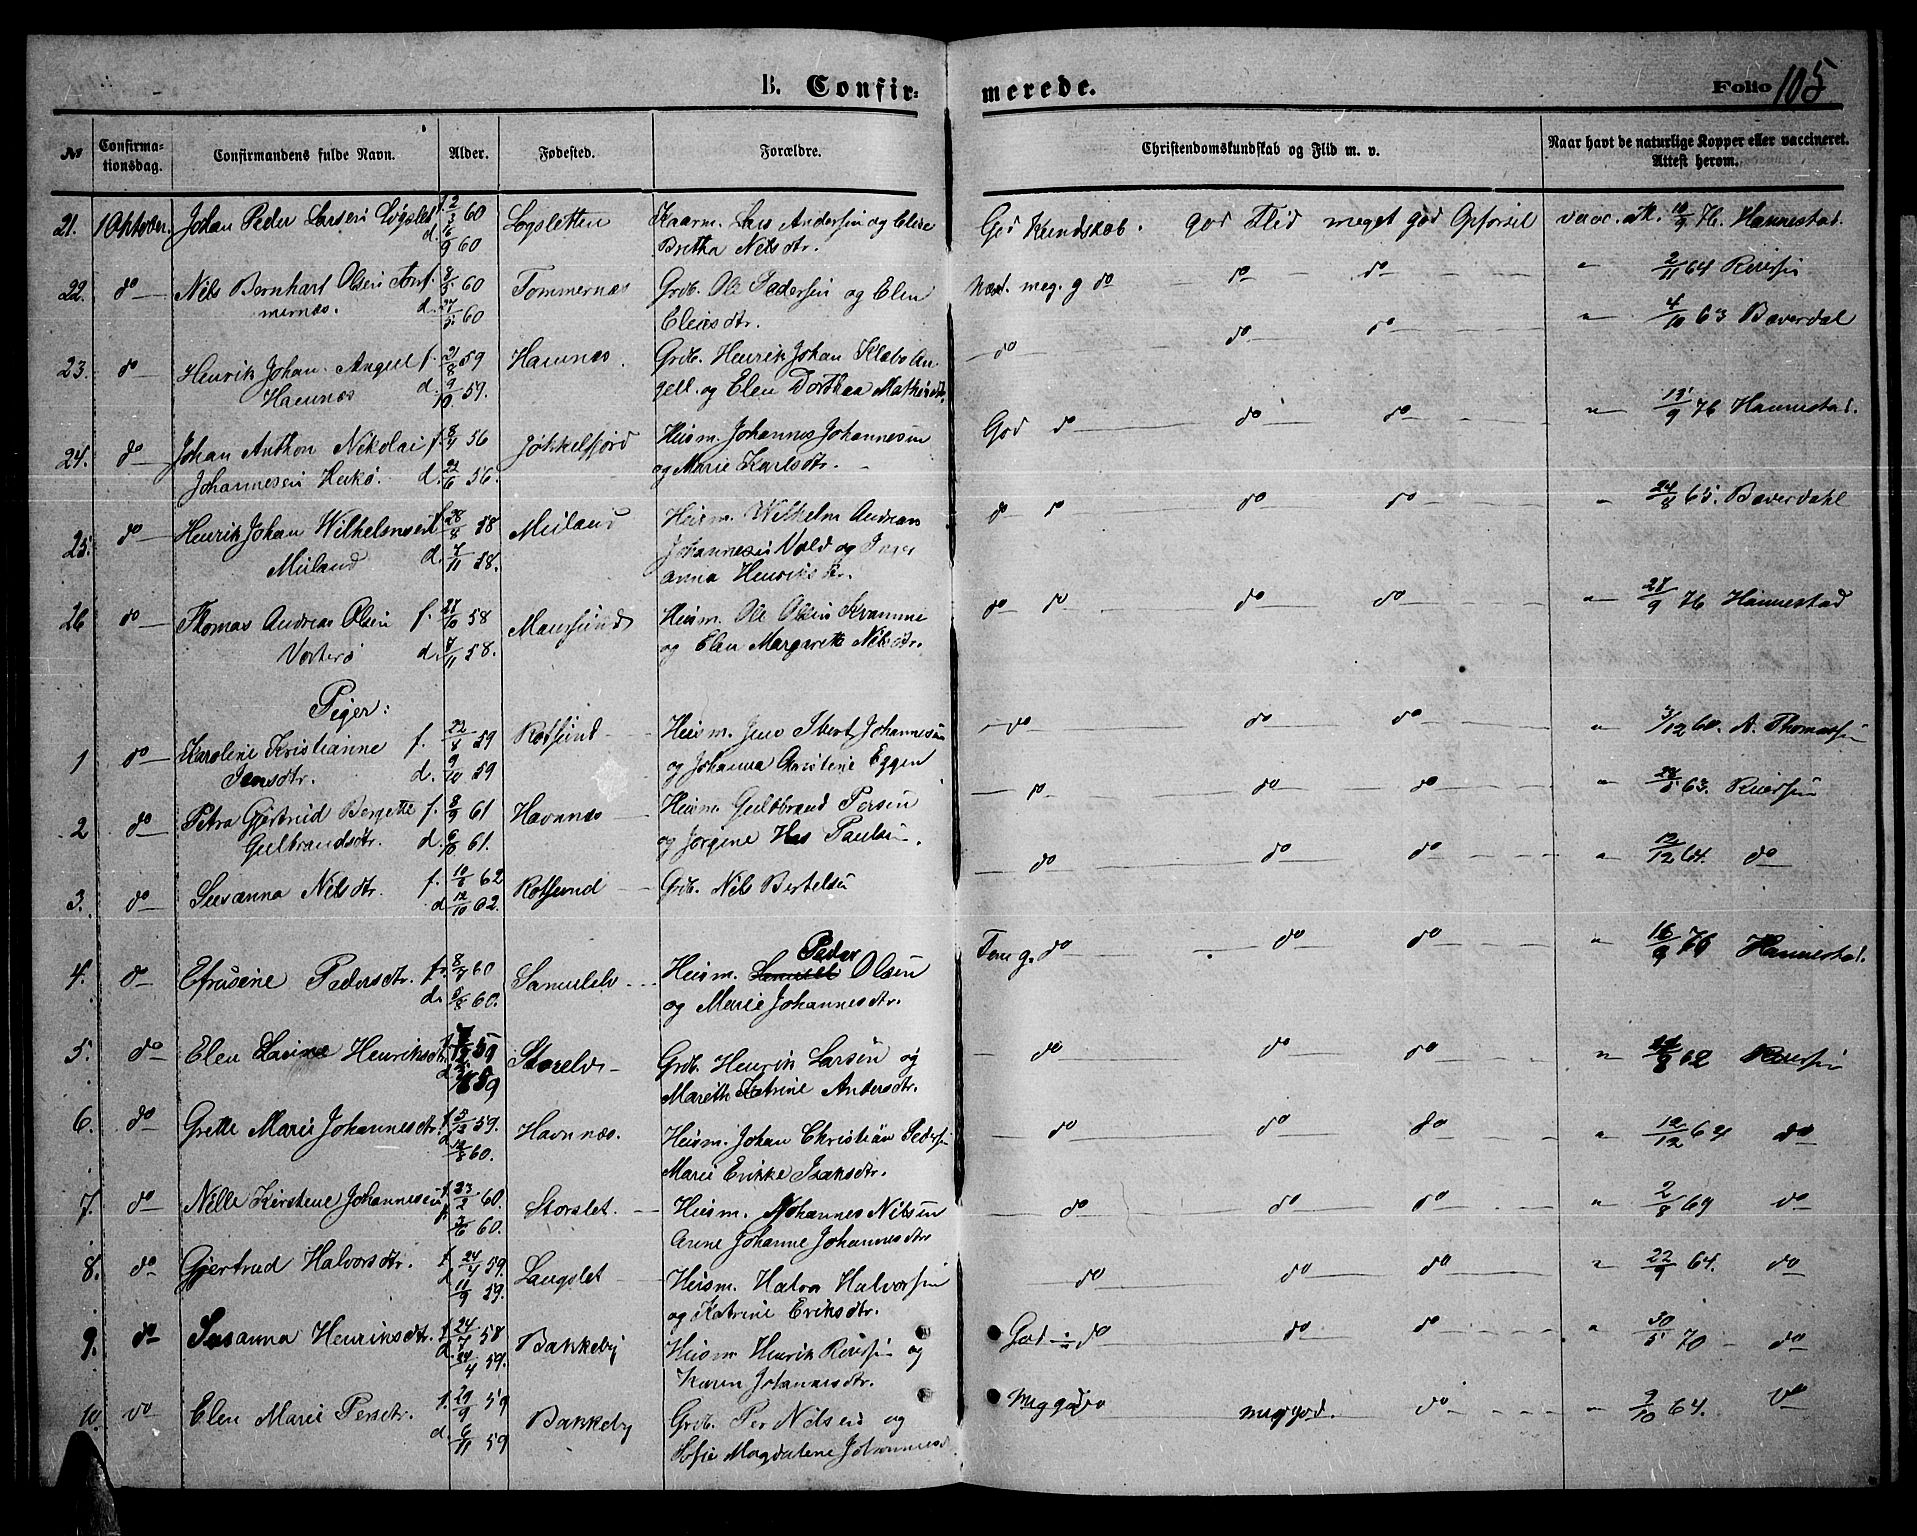 B. Confirmerede.
Folio 105
No
Confirmationsdag.
Confirmandens fulde Navn.
Alder.
Fødested.
Forældre.
Christendomskundskab og Flid m. v.
Naar havt de naturlige Kopper eller vaccineret. Attest herom.
21. 1 Oktober. Johan Peder Larsen f. 60 Kaarm. Lars Andersen og Elise God Kundskab. god Flid meget god Opførsel vacc. 76. Hannestad.
d. 6/9 60 Britha Nilsdtr.
22. do Nils Bernhart Olsen Tom- f. 60 Tommernæs Grdb. Ole Pedersen og Elen meg. g do do do " 2/11 64 Reiersen
mernæs. d. 27/5 60 Eliasdtr.
23. do Henrik Johan Angell f. 21/8 59 Havnnæs. Grdb. Henrik Johan Klæbo An- do do do " 4/10 63 Baverdal
Havnnæs d. 9/10. 59. gell. og Elen Dorthea
24. do Johan Anthon Nikolai f. 8/4 56 Jøkkelfjord Husm. Johannes Johannesen God do do do " 76 Hannestad.
Johannesen d. 22/6 56. og Marie Karlsdtr.
25. do Henrik Johan Wilhelmsen f. 28/8 58 Meiland Husm. Wilhelm Andreas do do do do " 24/8 65. Baverdahl
Meiland d. 7/11 58. Johannesen Vold og Inger
anna Henriksdtr.
26 do Thomas Andreas Olsen f. 27/10 58 Maursund Husm. Ole Olsen Kvamme do do do do " 9 76 Hannestad
Vorterø d. 7/11 58. og Elen Margarethe Nilsdtr.
Piger:
1 do Karoline Kristianne f. 22/8 59 Rotsund Husm. Jens Ibert Johannesen do do do " 3/12 60. A. Thomassen
Jensdtr. d. 9/10 59 og Johanna Christine Eggen
2 do Petra Gjertrud Bergette f. 8/9 61 Havnnæs Husm. Gulbrand Persen do do do " 63. Reiersen
Gulbrandsdtr. d. 6/10 61. og Jørgine Paulsen.
3. do Susanna Nilsdtr. f. 62 Rotsund Grdb. Nils Bertelsen do do do " 12/12 64. do
d. 12/10 62.
4. do Efrusine Pedersdtr. f. 60 Samuelelv Husm. Peder Olsen Tem g. do do do " 16/9 76 Hannestad.
d. 60. og Marie Johannesdtr.
5. do Elen Henriksdtr. 59 Storelv Grdb. Henrik Larsen og do do do " 62 Reiersen
59 Mareth Katrine Andersdtr.
6. do Grette Marie Johannesdtr. f. 5/12 59. Havnnæs. Husm. Johan Christian Pedersen do do do " 12/12 64 do
d. 60. Marie Erikke Isaksdtr.
7. do Nille Kirstene Johannesen f. 23/2 60. Storslet. Husm. Johannes Nilsen do do do " 2/8 69 do
60. Arene Johanne Johannesdtr
8. do Gjertrud Halvorsdtr. f. 24/4 59. Langslet Husm. Halvor Halvorsen do do do " 22/9 64. do
d 11/9 59. og Katrine Eriksdtr.
9. do Susanna Henriksdtr. f. 24/7 58 Bakkeby Husm Henrik Reiersen og God do do do " 30/5 70 do
d. 24/4 59. Karen Johannesdtr.
10 do Elen Marie Persdtr. f. 29/9 59 Bakkeby Grdb. Per Nilsen og Meg god do meg god. do " 9/10 64. do
d. 6/11 59 Sofie Magdalene Johannesd